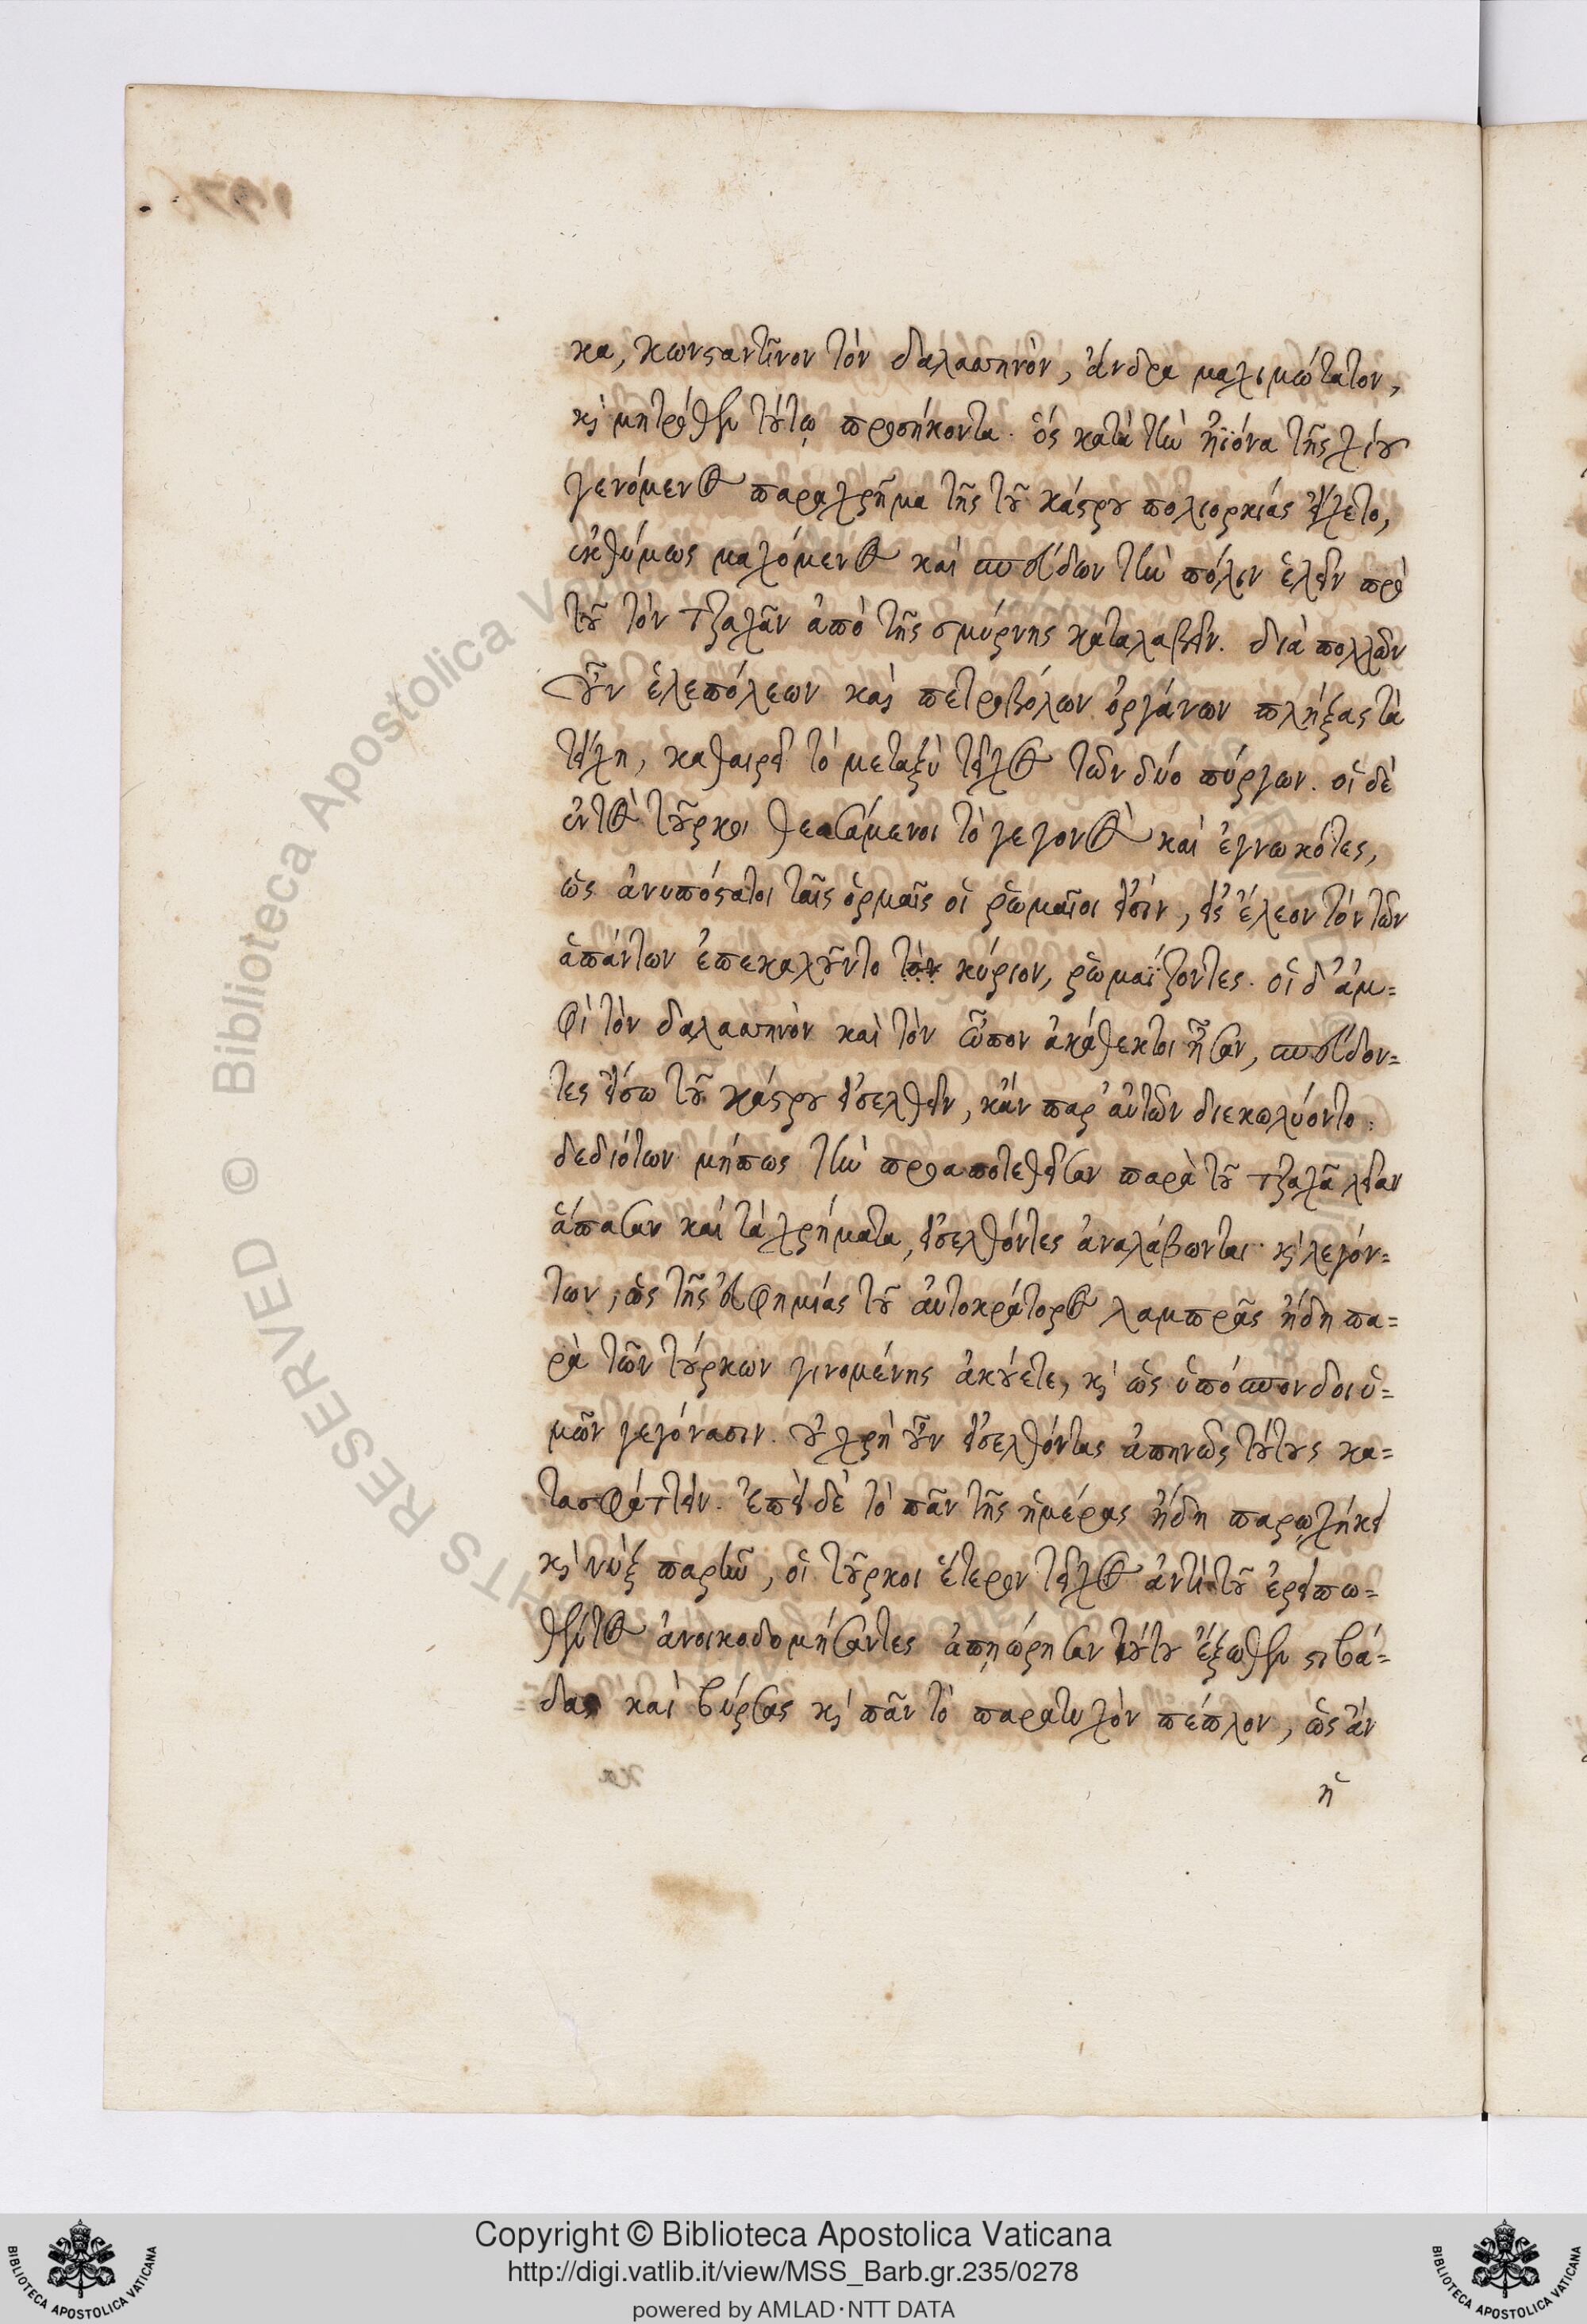 κα, κωνσταντῖνον τὸν δαλασηνὸν, ἄνδρα μαχιμώτατον,
κὶ μητρόθεν τούτῳ προσήκοντα. ὃς κατὰ τὴν ἠϊόνα τῆς χίου
γενόμενος παραχρῆμα τῆς τοῦ κάστρου πολιορκίας εἴχετο,
ἐκθύμως μαχόμενος καὶ σπεύδων τὴν πόλιν ἑλεῖν πρὸ
τοῦ τὸν τζαχᾶν ἀπὸ τῆς σμύρνης καταλαβεῖν. διὰ πολλῶν
οὖν ἑλεπόλεων καὶ πετροβόλων ὀργάνων πλήξας τὰ
τείχη, καθαιρεῖ τὸ μεταξὺ τεῖχος τῶν δύο πύργων. οἱ δὲ
ἐντὸς τοῦρκοι θεασάμενοι τὸ γεγονὸς καὶ ἐγνωκότες,
ὡς ἀνυπόστατοι ταῖς ὁρμαῖς οἱ ῥωμαῖοι εἰσίν, εἰς ἔλεον τὸν τῶν
ἁπάντων ἐπεκαλοῦντο τὸν κύριον, ῥωμαΐζοντες. οἱ δ' ἀμ=
φὶ τὸν δαλασηνὸν καὶ τὸν ὦπον ἀκάθεκτοι ἦσαν, σπεύδον=
τες εἴσω τοῦ κάστρου εἰσελθεῖν, κἂν παρ' αὐτῶν διεκωλύοντο.
δεδιότων μήπως τὴν προαποτεθεῖσαν παρὰ τοῦ τζαχᾶ λείαν
ἅπασαν καὶ τὰ χρήματα, εἰσελθόντες ἀναλάβωνται κὶ λεγόν=
των, ὡς τῆς εὐφημίας τοῦ αὐτοκράτορος λαμπρᾶς ἤδη πα=
ρὰ τῶν τούρκων γινομένης ἀκούετε, κὶ ὡς ὑπόσπονδοι ὑ=
μῶν γεγόνασιν. οὐ χρὴ οὖν εἰσελθόντας ἀπηνῶς τούτους κα=
τασφάττειν. ἐπεὶ δὲ τὸ πᾶν τῆς ἡμέρας ἤδη παρῳχήκει
κὶ νὺξ παρῆν, οἱ τοῦρκοι ἕτερον τεῖχος ἀντὶ τοῦ ἐρειπω=
θέντος ἀνοικοδομήσαντες ἀπῃώρησαν τούτου ἔξωθεν στιβά=
δας καὶ βύρσας κὶ πᾶν τὸ παρατυχὸν πέπλον, ὡς ἂν
ἡ
Copyright © Biblioteca Apostolica Vaticana
http://digi.vatlib.it/view/MSS_Barb.gr.235/0278
powered by AMLAD·NTT DATA